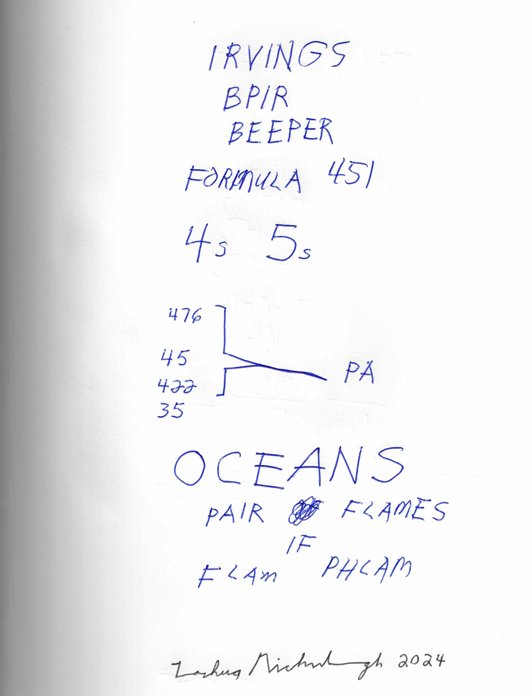 IRVINGS
BPIR
BEEPER
FORMULA 451
4s 5s
476
45
422
35
PA
OCEANS
PAIR FLAMES
IF
FLAM PHLAM
2024